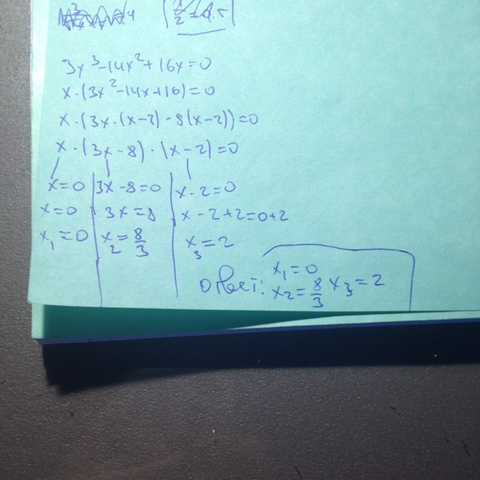 3x³-14x²+16x=0
x·(3x²-14x+16)=0
x·(3x·(x-2)-8(x-2))=0
x·(3x-8)·(x-2)=0
x=0 | 3x-8=0 | x-2=0
x=0 | 3x=8 | x-2+2=0+2
x₁=0 | x₂=8/3 | x₃=2
Ответ: x₁=0
x₂=8/3 x₃=2